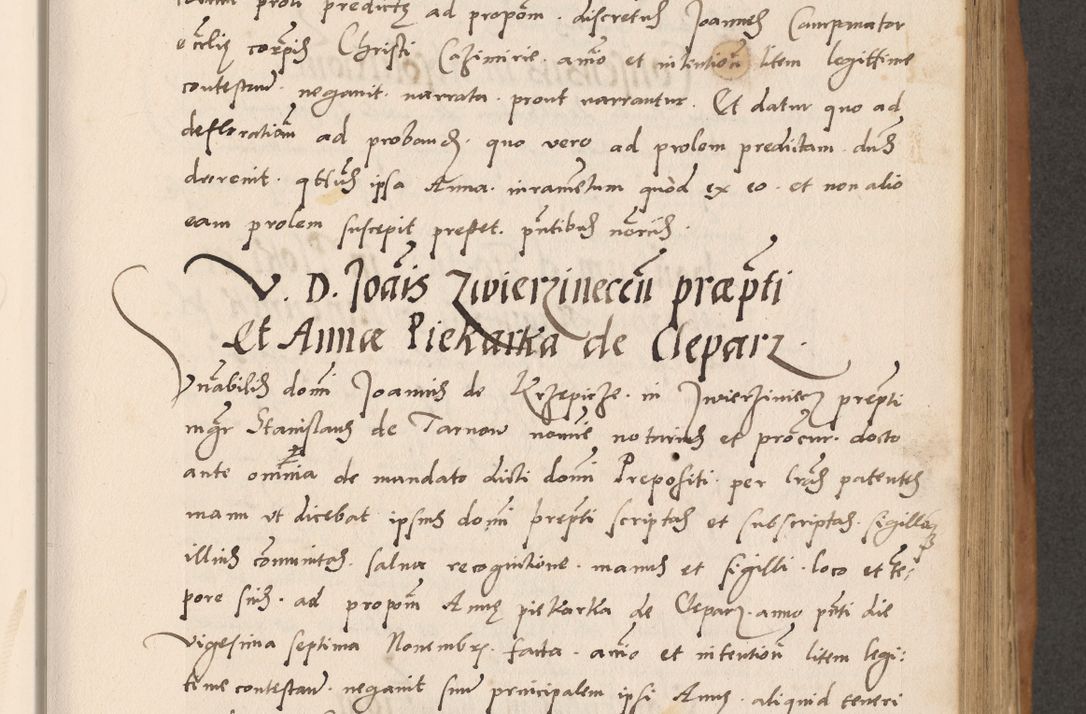 prolis predictę ad propoᷠ. discretus Joannes Campnator
ecclię corpis Christi Cazimirie. anīo et intentioñ litem legittime
contestanᷣ. negavit. narrata. prout narrantur. Et datur quo ad
deflorationē ad probandū. quo vero ad prolem predictam. dūs
decrevit. qttūs ipsa Anna. iuramētum quòd ex eo. et non alio
eam prolem suscepit prestet. pn̄tibus nōrīs.
V. D. Joāis Zwierzineccñ præp̄ti
Et Annæ Piekarka de Cleparz.
Vn̄abilis domi Joannis de Krzepicze. in Zwierziniecz prep̄ti
mgr̄ Stanislaus de Tarnow nomīe notorius et procur. docto
ante omnia de mandato dicti domi Prepositi. per lr̄as patentes
manu ut dicebat ipsius domi prep̄ti scriptas et subscriptas. sigilloq̄
illius cōmunitas. salva recognitione. manus et sigilli. loco et tē-
pore suis. ad propoᷠ Annę piekarka de Cleparz. anno pn̄ti die
vigesima septima Novembrę. facta. anīo et intentioñ litem legi:
time contestanᷣ. negavit suū principalem ipsi Annę. aliquid teneri